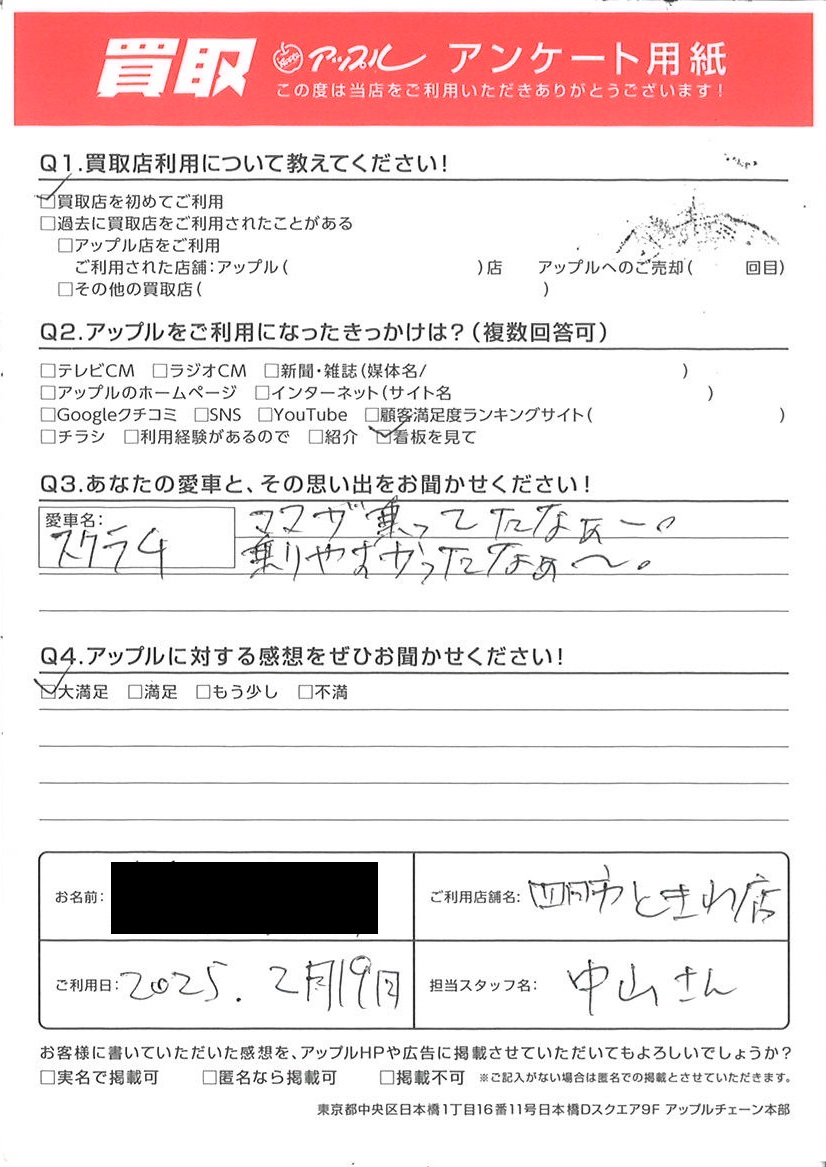 買取 アップル アンケート用紙
この度は当店をご利用いただきありがとうございます!
Q1.買取店利用について教えてください!
☑買取店を初めてご利用
□過去に買取店をご利用されたことがある
□アップル店をご利用
ご利用された店舗:アップル( )店 アップルへのご売却( 回目)
□その他の買取店( )
Q2.アップルをご利用になったきっかけは?(複数回答可)
□テレビCM □ラジオCM □新聞・雑誌(媒体名/ )
□アップルのホームページ □インターネット(サイト名 )
□Googleクチコミ □SNS □YouTube □顧客満足度ランキングサイト( )
□チラシ □利用経験があるので □紹介 ☑看板を見て
Q3.あなたの愛車と、その思い出をお聞かせください!
愛車名:
スクラム
ママが乗ってたなぁー。
乗りやすかったなぁ〜。
Q4.アップルに対する感想をぜひお聞かせください!
☑大満足 □満足 □もう少し □不満
お名前:
ご利用店舗名: 四日市ときわ店
ご利用日: 2025. 2月19日
担当スタッフ名: 中山さん
お客様に書いていただいた感想を、アップルHPや広告に掲載させていただいてもよろしいでしょうか?
□実名で掲載可 □匿名なら掲載可 □掲載不可 ※ご記入がない場合は匿名での掲載とさせていただきます。
東京都中央区日本橋1丁目16番11号日本橋Dスクエア9F アップルチェーン本部